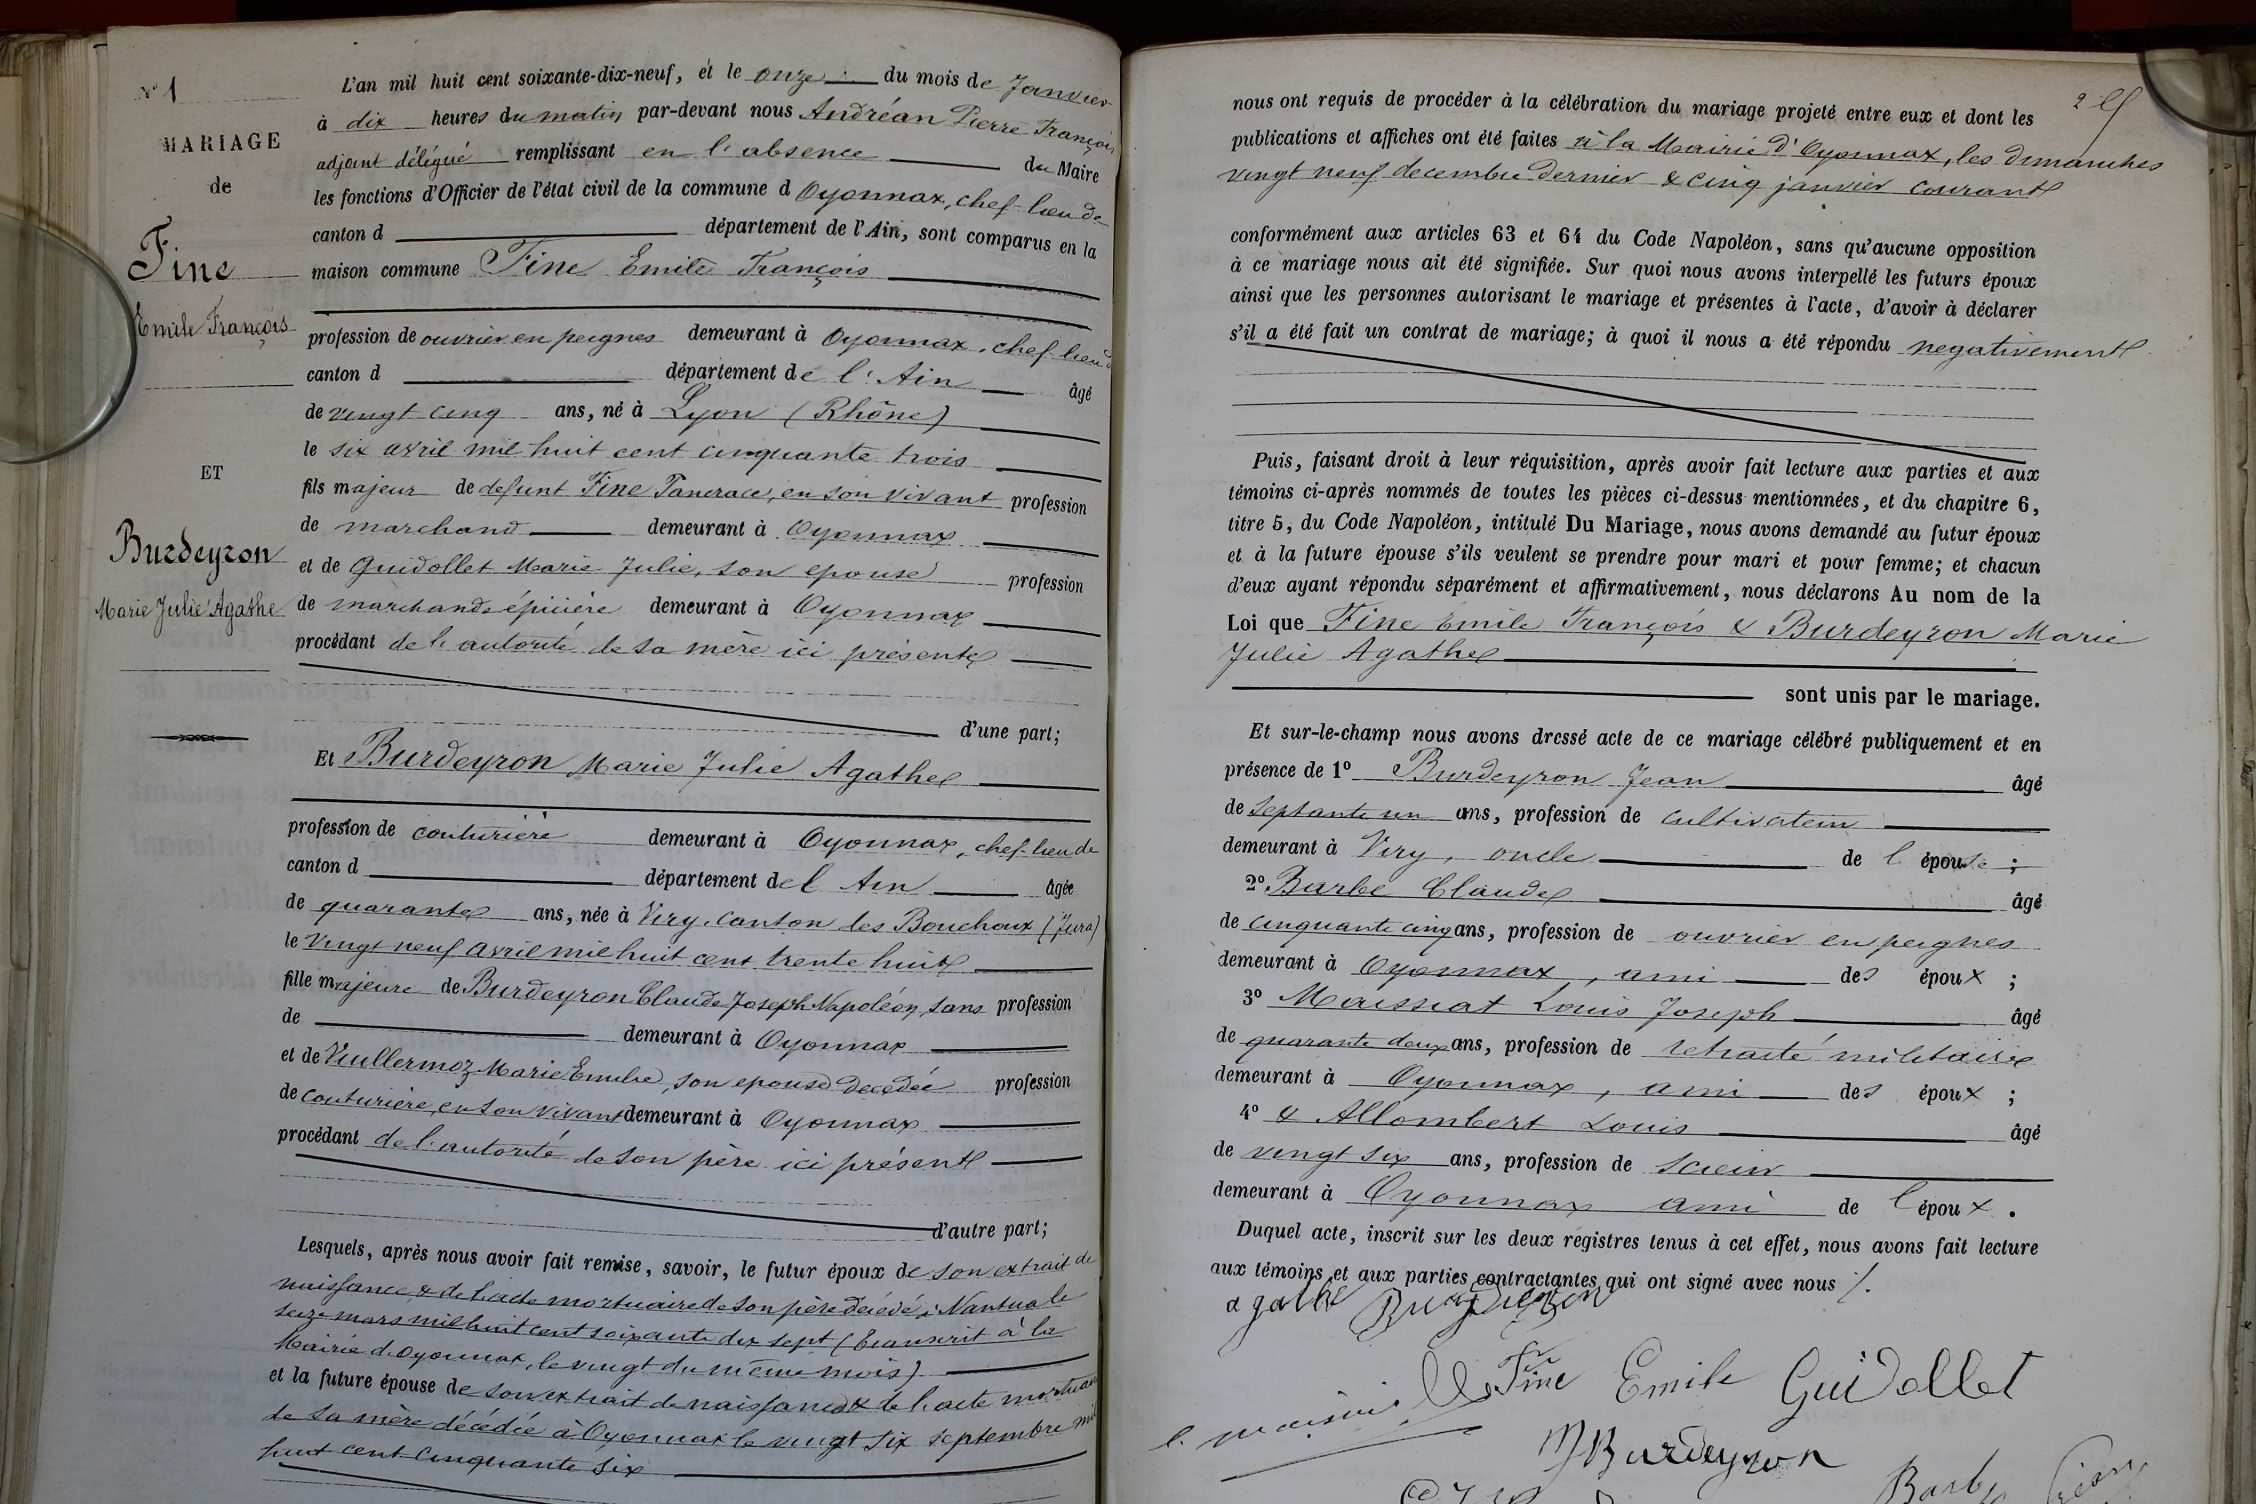 N° 1
MARIAGE
de
Fine
Emile François
ET
Burdeyron
Marie Julie Agathe
L'an mil huit cent soixante-dix-neuf, et le onze du mois de Janvier
à dix heures du matin par-devant nous Andréan Pierre François
adjoint délégué remplissant en l'absence du Maire
les fonctions d'Officier de l'état civil de la commune d Oyonnax, chef-lieu de
canton d département de l'Ain, sont comparus en la
maison commune Fine Emile François
profession de ouvrier en peignes demeurant à Oyonnax, chef-lieu d
canton d département de l'Ain âgé
de vingt cinq ans, né à Lyon (Rhône)
le six avril mil huit cent cinquante trois
fils majeur de defunt Fine Pancrace, en son vivant profession
de marchand demeurant à Oyonnax
et de Guidollet Marie Julie, son epouse profession
de marchande épicière demeurant à Oyonnax
procèdant de l'autorité de sa mère ici présente
d'une part;
Et Burdeyron Marie Julie Agathe
profession de couturière demeurant à Oyonnax, chef-lieu de
canton d département de l Ain âgée
de quarante ans, née à Viry, canton les Bouchoux (Jura)
le vingt neuf avril mil huit cent trente huit
fille majeure de Burdeyron Claude Joseph Napoléon, sans profession
de demeurant à Oyonnax
et de Vuillermoz Marie Emelie, son epouse decédée profession
de couturière, en son vivant demeurant à Oyonnax
procédant de l'autorité de son père ici présent
d'autre part;
Lesquels, après nous avoir fait remise, savoir, le futur époux de son extrait de
naissance & de l'acte mortuaire de son père décédé à Nantua le
seize mars mil huit cent soixante dix sept (transcrit à la
Mairie d'Oyonnax, le vingt du même mois)
et la future épouse de son extrait de naissance & de l'acte mortuaire
de sa mère décédée à Oyonnax le vingt six septembre mil
huit cent cinquante six
2
nous ont requis de procéder à la célébration du mariage projeté entre eux et dont les
publications et affiches ont été faites à la Mairie d'Oyonnax, les dimanches
vingt neuf decembre dernier & cinq janvier courant
conformément aux articles 63 et 64 du Code Napoléon, sans qu'aucune opposition
à ce mariage nous ait été signifiée. Sur quoi nous avons interpellé les futurs époux
ainsi que les personnes autorisant le mariage et présentes à l'acte, d'avoir à déclarer
s'il a été fait un contrat de mariage; à quoi il nous a été répondu negativement
Puis, faisant droit à leur réquisition, après avoir fait lecture aux parties et aux
témoins ci-après nommés de toutes les pièces ci-dessus mentionnées, et du chapitre 6,
titre 5, du Code Napoléon, intitulé Du Mariage, nous avons demandé au futur époux
et à la future épouse s'ils veulent se prendre pour mari et pour femme; et chacun
d'eux ayant répondu séparément et affirmativement, nous déclarons Au nom de la
Loi que Fine Emile François & Burdeyron Marie
Julie Agathe
sont unis par le mariage.
Et sur-le-champ nous avons dressé acte de ce mariage célébré publiquement et en
présence de 1° Burdeyron Jean âgé
de septante un ans, profession de cultivateur
demeurant à Viry, oncle de l épouse ;
2° Barbe Claude âgé
de cinquante cinq ans, profession de ouvrier en peignes
demeurant à Oyonnax, ami des époux ;
3° Maissiat Louis Joseph âgé
de quarante deux ans, profession de retraité militaire
demeurant à Oyonnax, ami des époux ;
4° & Allombert Louis âgé
de vingt six ans, profession de scieur
demeurant à Oyonnax ami de l époux.
Duquel acte, inscrit sur les deux régistres tenus à cet effet, nous avons fait lecture
aux témoins et aux parties contractantes qui ont signé avec nous ⁒.
agathe Burdeyron
Fine Emile Guidollet
Burdeyron
Barbe